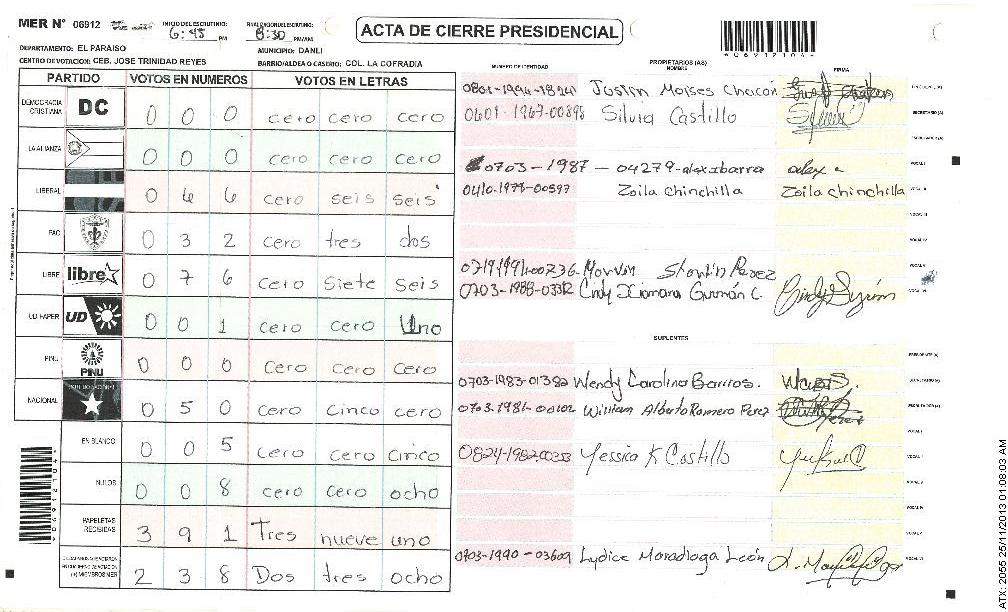 MER N° 06912 INICIO DEL ESCRUTINIO: 6:45 PM FINALIZACION DEL ESCRUTINIO: 8:30 PM/AM ACTA DE CIERRE PRESIDENCIAL 4069121044
DEPARTAMENTO: EL PARAISO MUNICIPIO: DANLI
CENTRO DE VOTACION: CEB. JOSE TRINIDAD REYES BARRIO/ALDEA O CASERIO: COL. LA COFRADIA
PARTIDO VOTOS EN NUMEROS VOTOS EN LETRAS
DEMOCRACIA CRISTIANA DC 0 0 0 cero cero cero
LA ALIANZA 0 0 0 cero cero cero
LIBERAL 0 6 6 cero seis seis
PAC 0 3 2 cero tres dos
LIBRE libre 0 7 6 cero siete seis
UD FAPER UD 0 0 1 cero cero uno
PINU PINU 0 0 0 cero cero cero
NACIONAL 0 5 0 cero cinco cero
EN BLANCO 0 0 5 cero cero cinco
NULOS 0 0 8 cero cero ocho
PAPELETAS RECIBIDAS 3 9 1 Tres nueve uno
2 3 8 Dos tres ocho
NUMERO DE IDENTIDAD PROPIETARIOS (AS) NOMBRE FIRMA
0801-1994-18241 Justin Moises Chacón PRESIDENTE (A)
0601-1967-00895 Silvia Castillo SECRETARIO (A)
ESCRUTADOR (A)
0703-1987-04279-alex ibarra alex VOCAL I
0410-1978-00597 Zoila Chinchilla Zoila Chinchilla VOCAL II
VOCAL III
VOCAL IV
VOCAL V
0703-1988-03312 Cindy Xiomara Guzmán C. VOCAL VI
SUPLENTES
PRESIDENTE (A)
0703-1983-01382 Wendy Carolina Barrios. SECRETARIO (A)
0703-1981-00102 William Alberto Romero Perez ESCRUTADOR (A)
VOCAL I
0824-1982-00353 Yessica K Castillo
VOCAL IV
VOCAL V
0703-1990-03609 Lydice Maradiaga León VOCAL VI
ATX: 2055 25/11/2013 01:08:03 AM